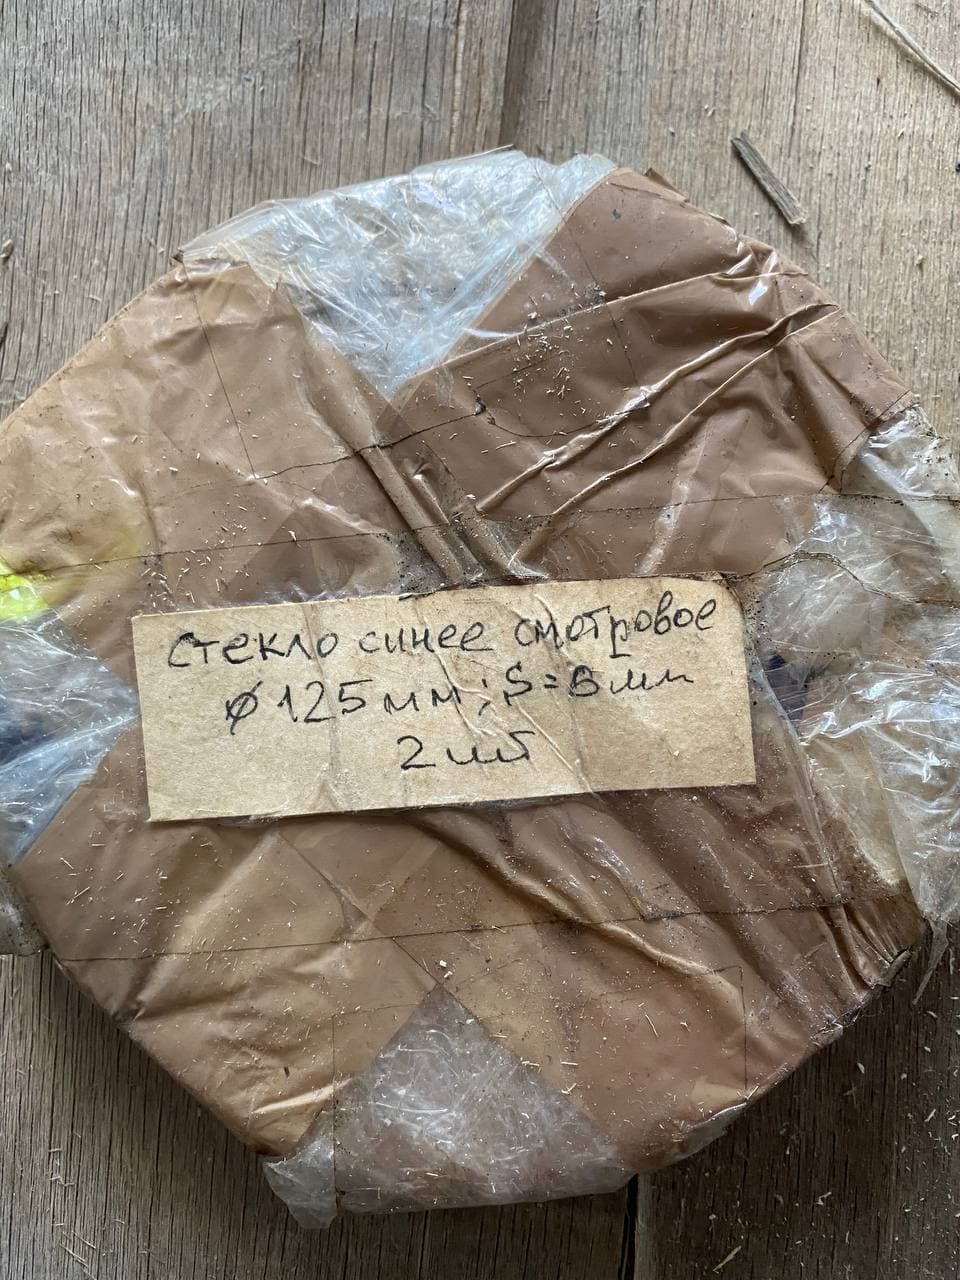 стекло синее смотровое
⌀ 125 мм; S=8 мм
2 шт